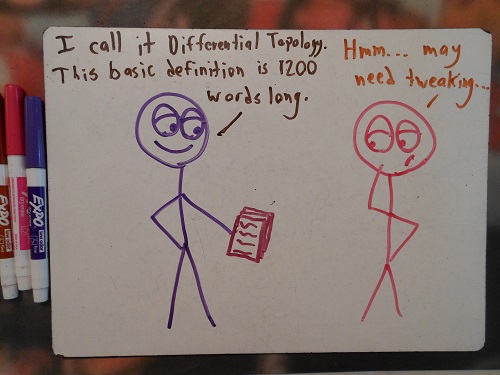 I call it Differential Topology.
This basic definition is 1200
words long.
Hmm... may
need tweaking...
EXPO
EXPO